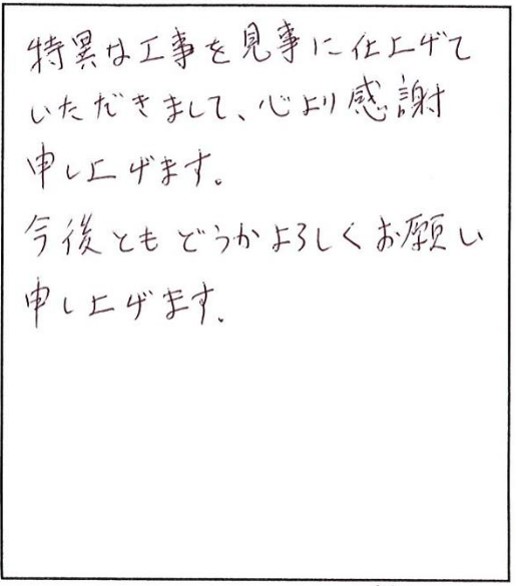 特異な工事を見事に仕上げて
いただきまして、心より感謝
申し上げます。
今後ともどうかよろしくお願い
申し上げます。